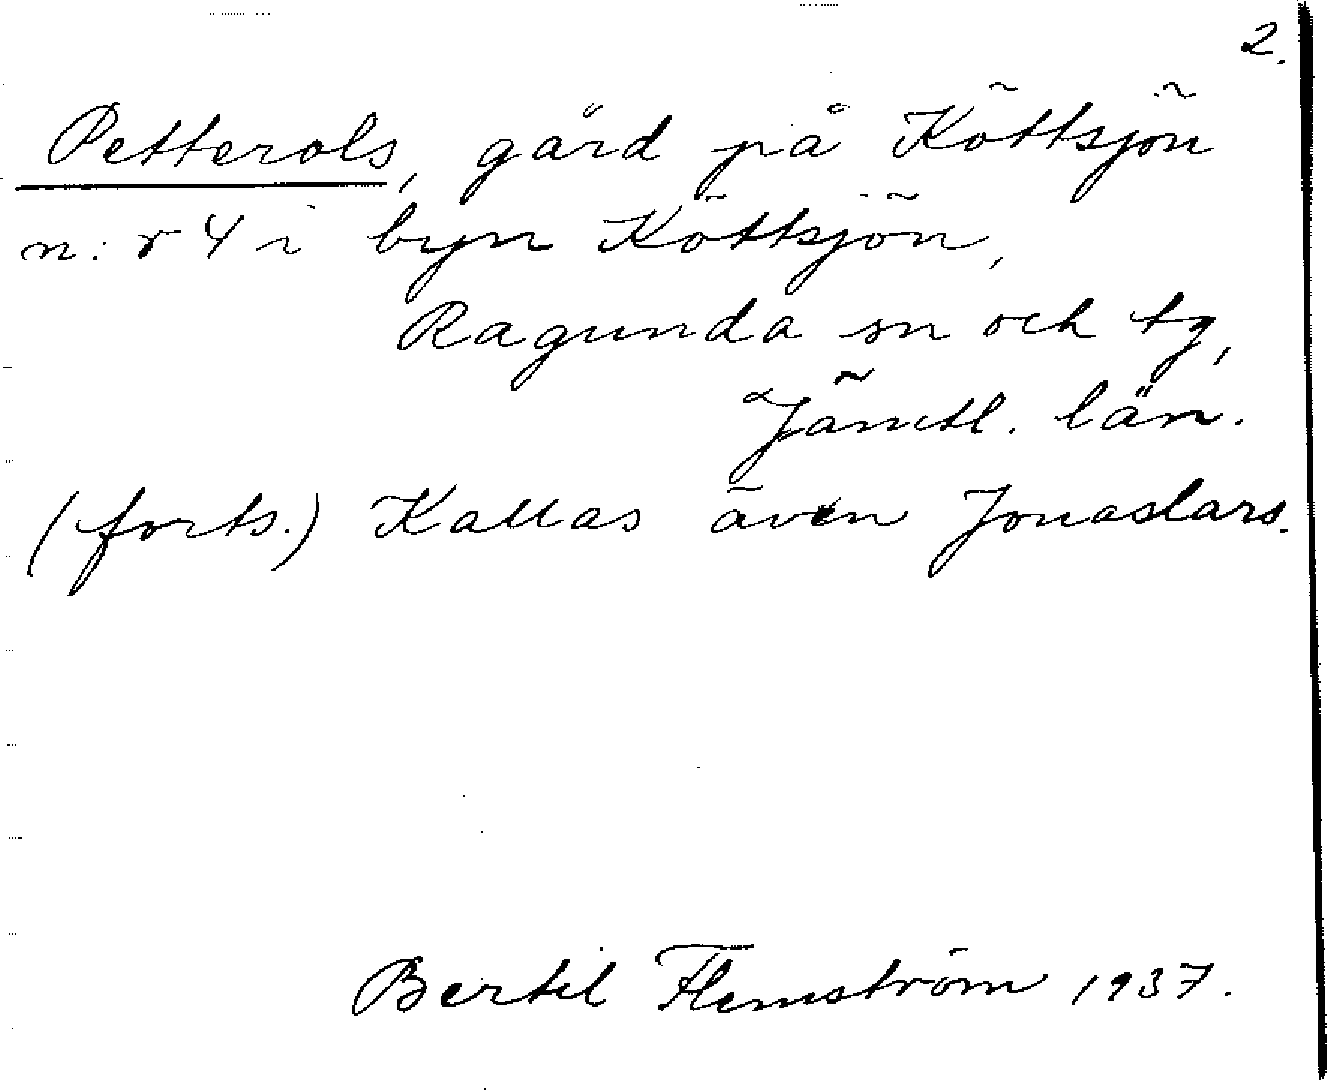 2.
Petterols, gård på Köttsjön
n:r 4 i byn Köttsjön,
Ragunda sn och tg,
Jämtl. län.
(forts.) Kallas även Jonaslars.
Bertil Flemström 1937.